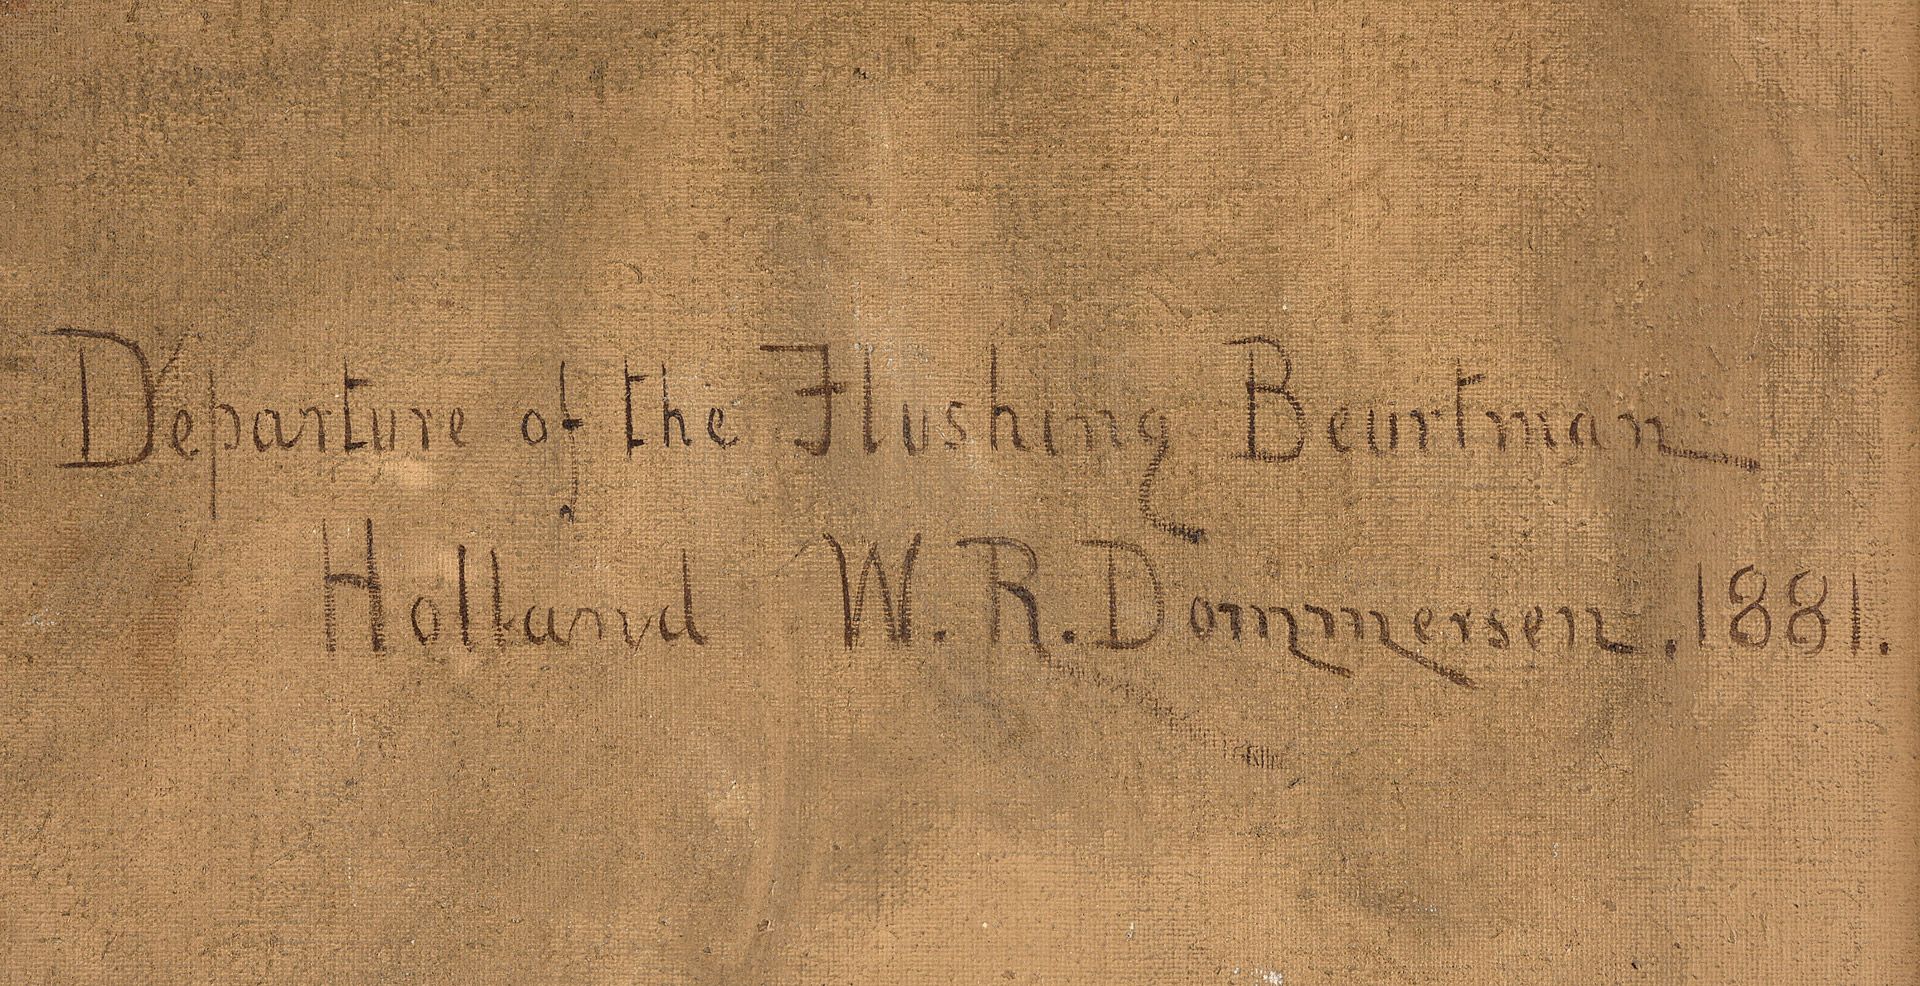 Departure of the Flushing Beurtman
Holland W. R. Dommersen. 1881.